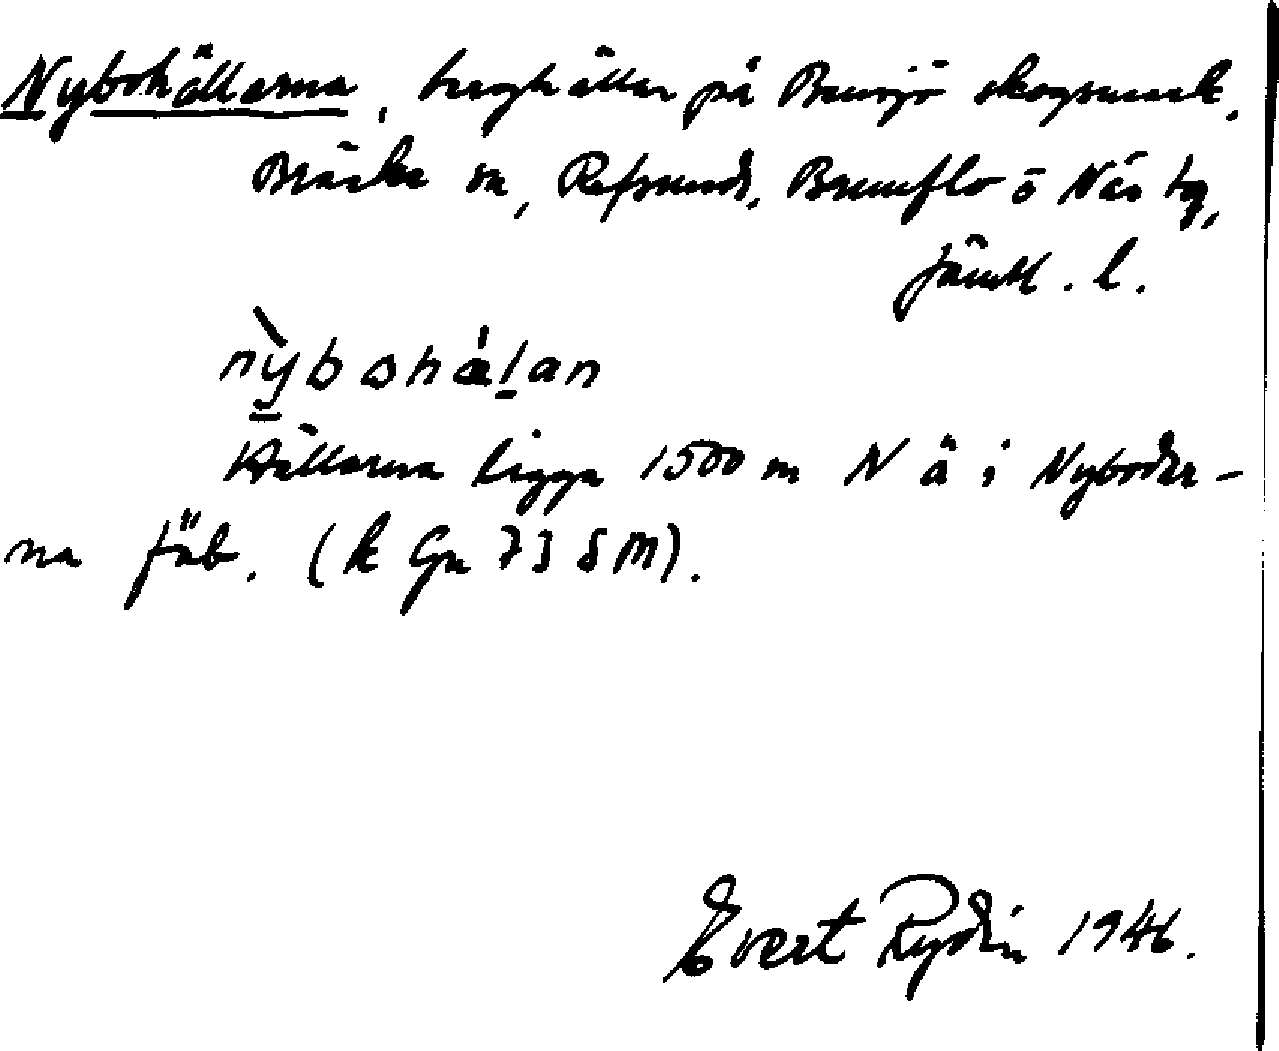 Nybohällarna, berghällar på Bensjö skogsmark.
Bräcke sn, Refsunds, Brunflo o Näs tg,
Jämtl. l.
nỳbohàlan
Hällarna ligga 1500 m N ä i Nyboder-
na fäb. (k Gn 73 S M).
Evert Rydin 1946.